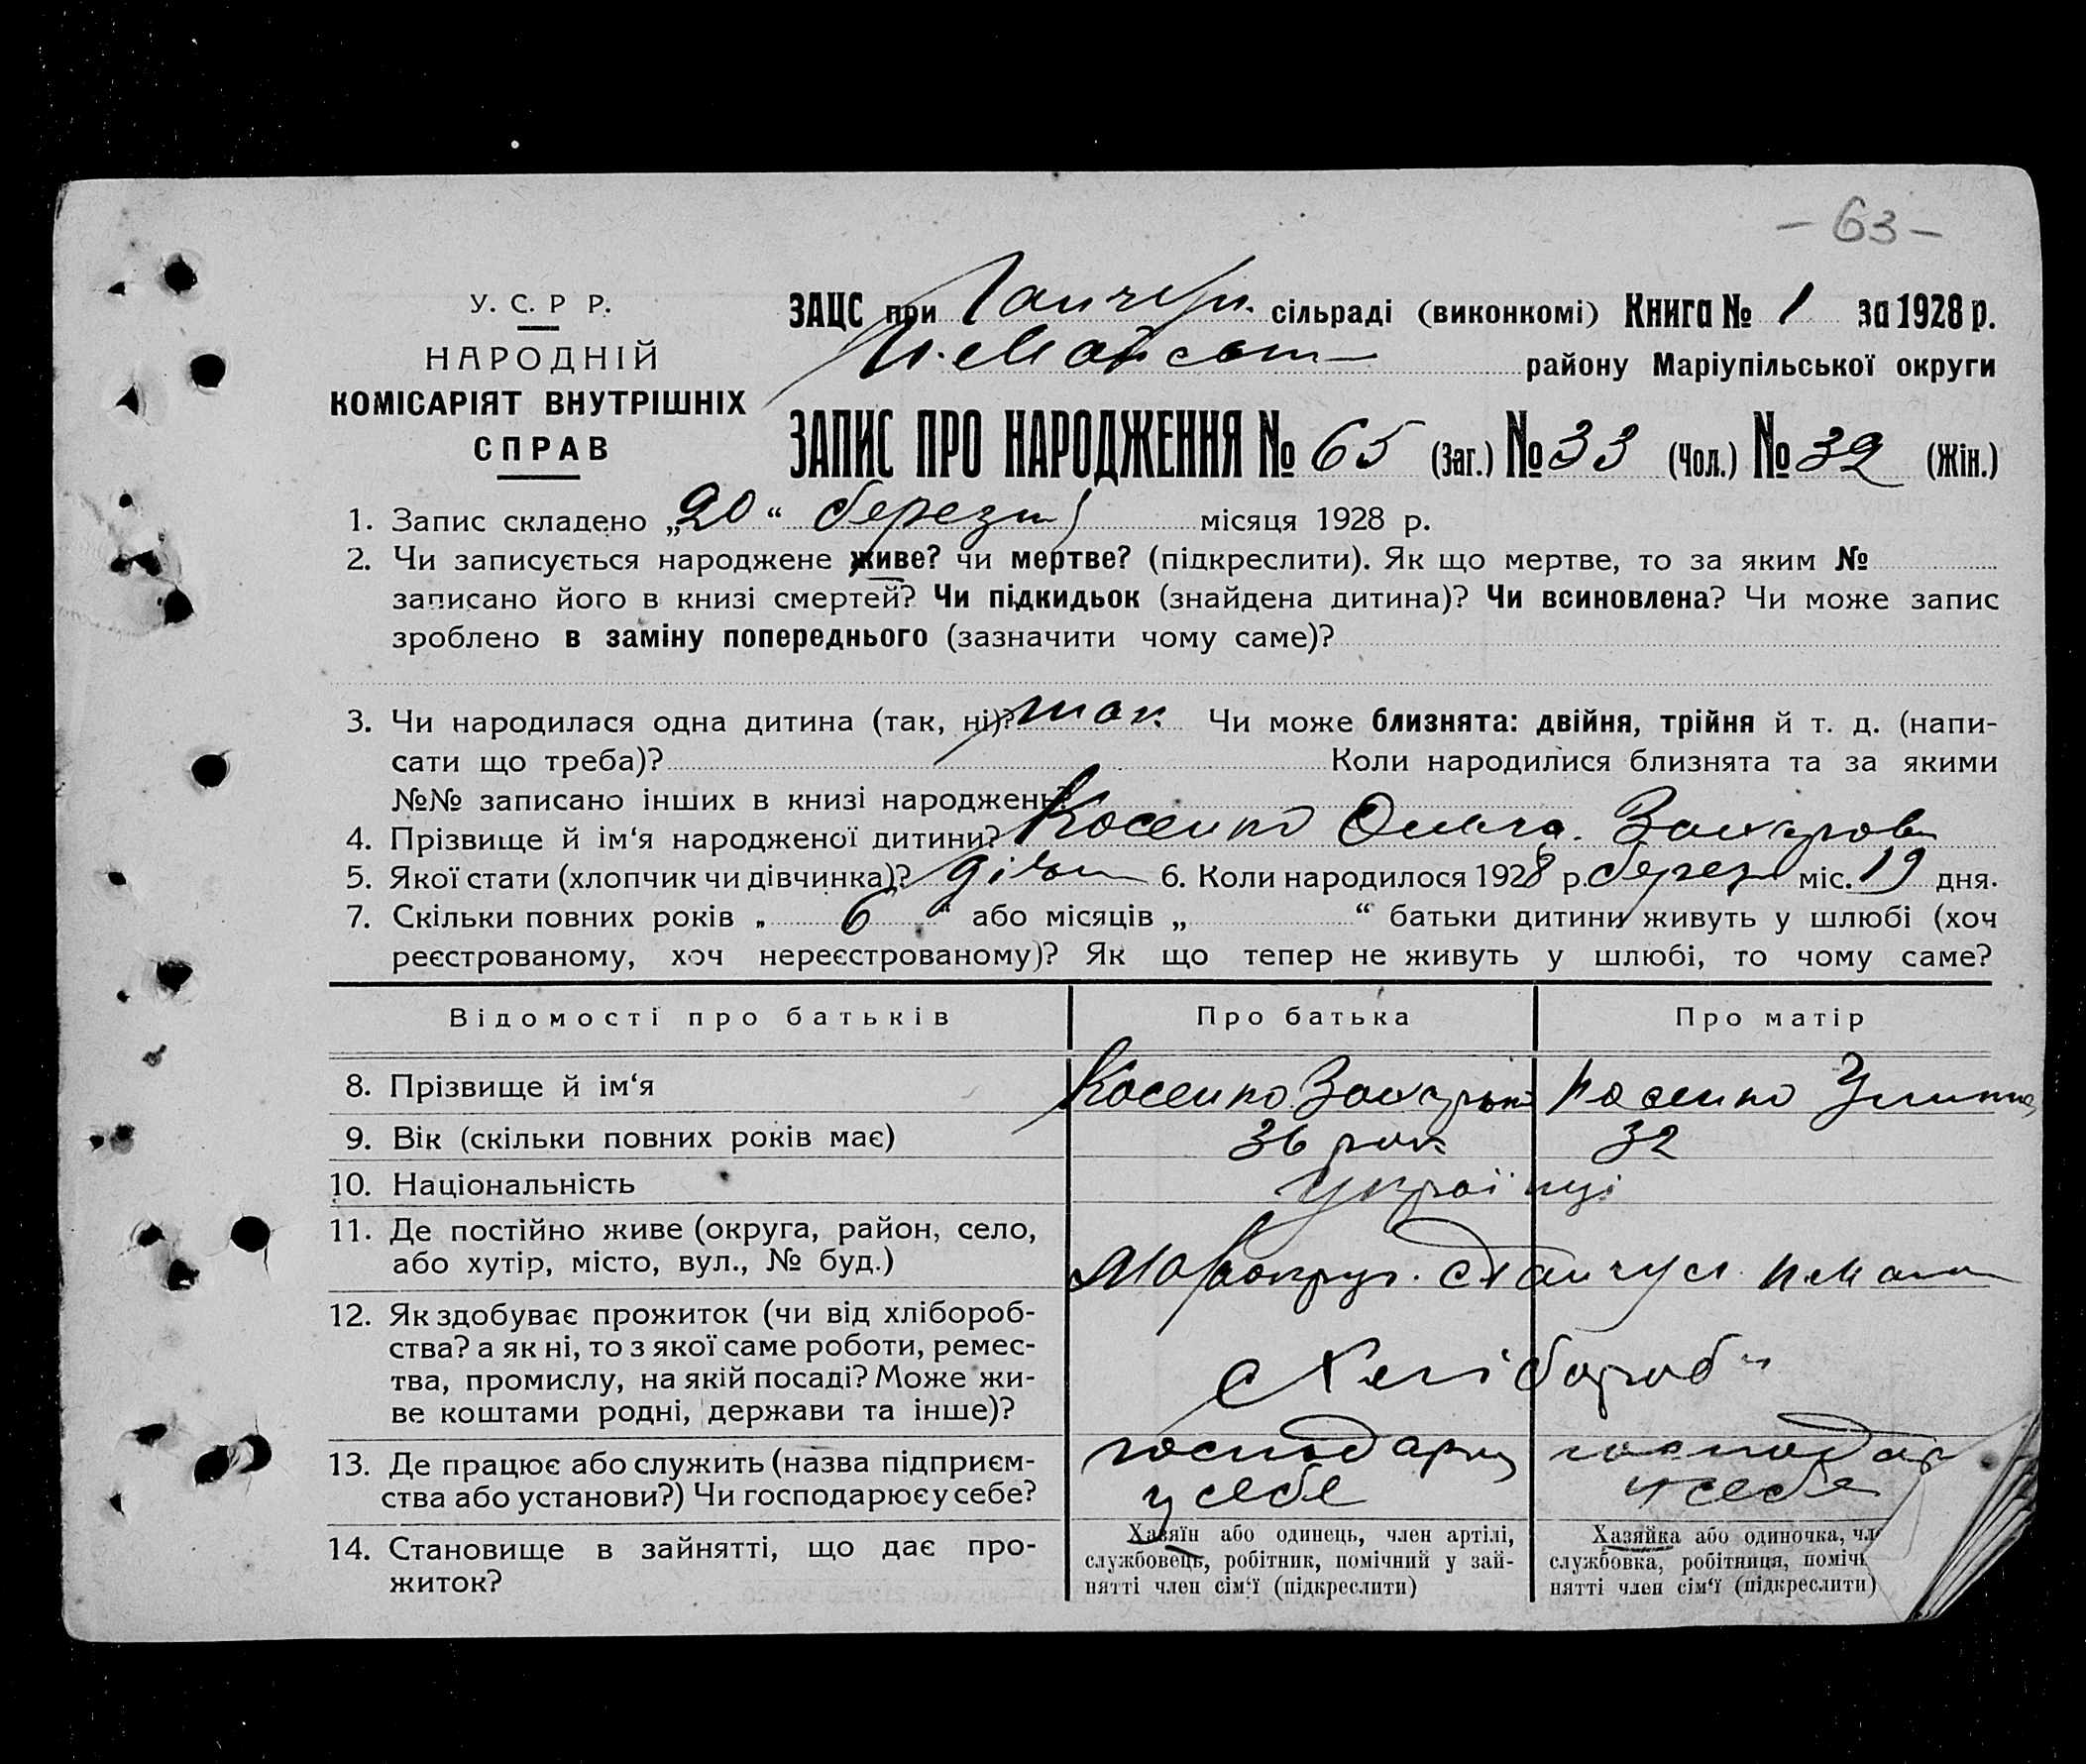 - 63 -
У. С. Р Р.
НАРОДНІЙ
КОМІСАРІЯТ ВНУТРІШНІХ
СПРАВ
ЗАЦС при сільраді (виконкомі) Книга № 1 за 1928 р.
району Маріупільської округи
ЗАПИС ПРО НАРОДЖЕННЯ № 65 (Заг.) № 33 (Чол.) № 32 (Жін.)
1. Запис складено „20“ березня місяця 1928 р.
2. Чи записується народжене живе? чи мертве? (підкреслити). Як що мертве, то за яким №
записано його в книзі смертей? Чи підкидьок (знайдена дитина)? Чи всиновлена? Чи може запис
зроблено в заміну попереднього (зазначити чому саме)?
3. Чи народилася одна дитина (так, ні)? так Чи може близнята: двійня, трійня й т. д. (напи-
сати що треба)? Коли народилися близнята та за якими
№№ записано інших в книзі народжень?
4. Прізвище й ім‘я народженої дитини? Косенко Ольга
5. Якої стати (хлопчик чи дівчинка)? дівч 6. Коли народилося 1928 р. березня міс. 19 дня.
7. Скільки повних років „ 6 “ або місяців „ “ батьки дитини живуть у шлюбі (хоч
реєстрованому, хоч нереєстрованому)? Як що тепер не живуть у шлюбі, то чому саме?
Відомості про батьків Про батька Про матір
8. Прізвище й ім‘я Косенко Косенко
9. Вік (скільки повних років має) 36 рок 32
10. Національність Українці
11. Де постійно живе (округа, район, село,
або хутір, місто, вул., № буд.)
12. Як здобуває прожиток (чи від хлібороб-
ства? а як ні, то з якої саме роботи, ремес-
тва, промислу, на якій посаді? Може жи-
ве коштами родні, держави та інше)?
Хлібороби
13. Де працює або служить (назва підприєм-
ства або установи?) Чи господарює у себе?
господарює у себе господар у себе
14. Становище в зайнятті, що дає про-
житок?
Хазяїн або одинець, член артілі,
службовець, робітник, помічний у зай-
нятті член сім‘ї (підкреслити)
Хазяйка або одиночка, чл
службовка, робітниця, поміч
нятті член сім‘ї (підкреслити)